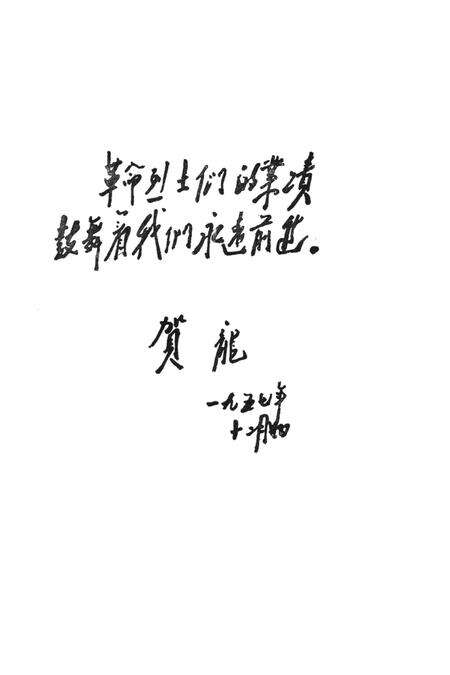 革命烈士们的業績
鼓舞着我們永遠前進。
賀龍
一九五七年
十二月